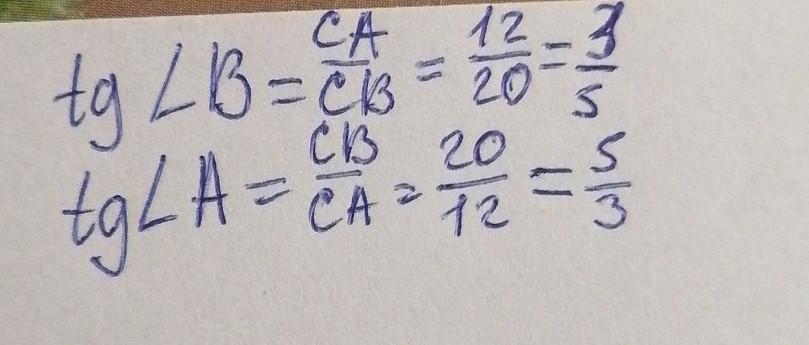 tg∠B = CA/CB = 12/20 = 3/5
tg∠A = CB/CA = 20/12 = 5/3